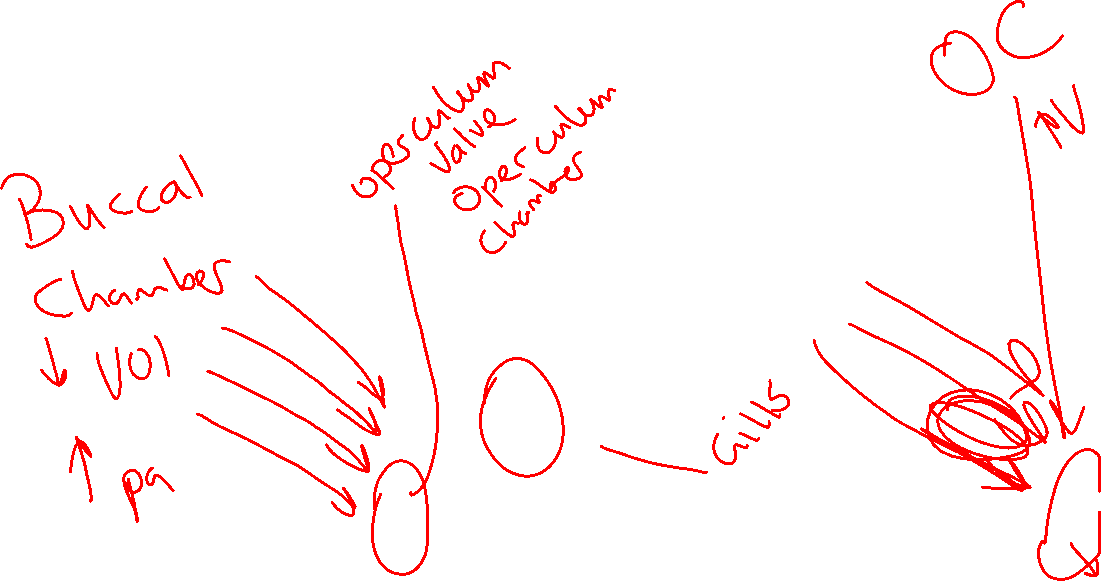 Buccal
Chamber
↓ VOl
↑ pa
operculum
valve
operculum
chamber
Gills
OC
↑V